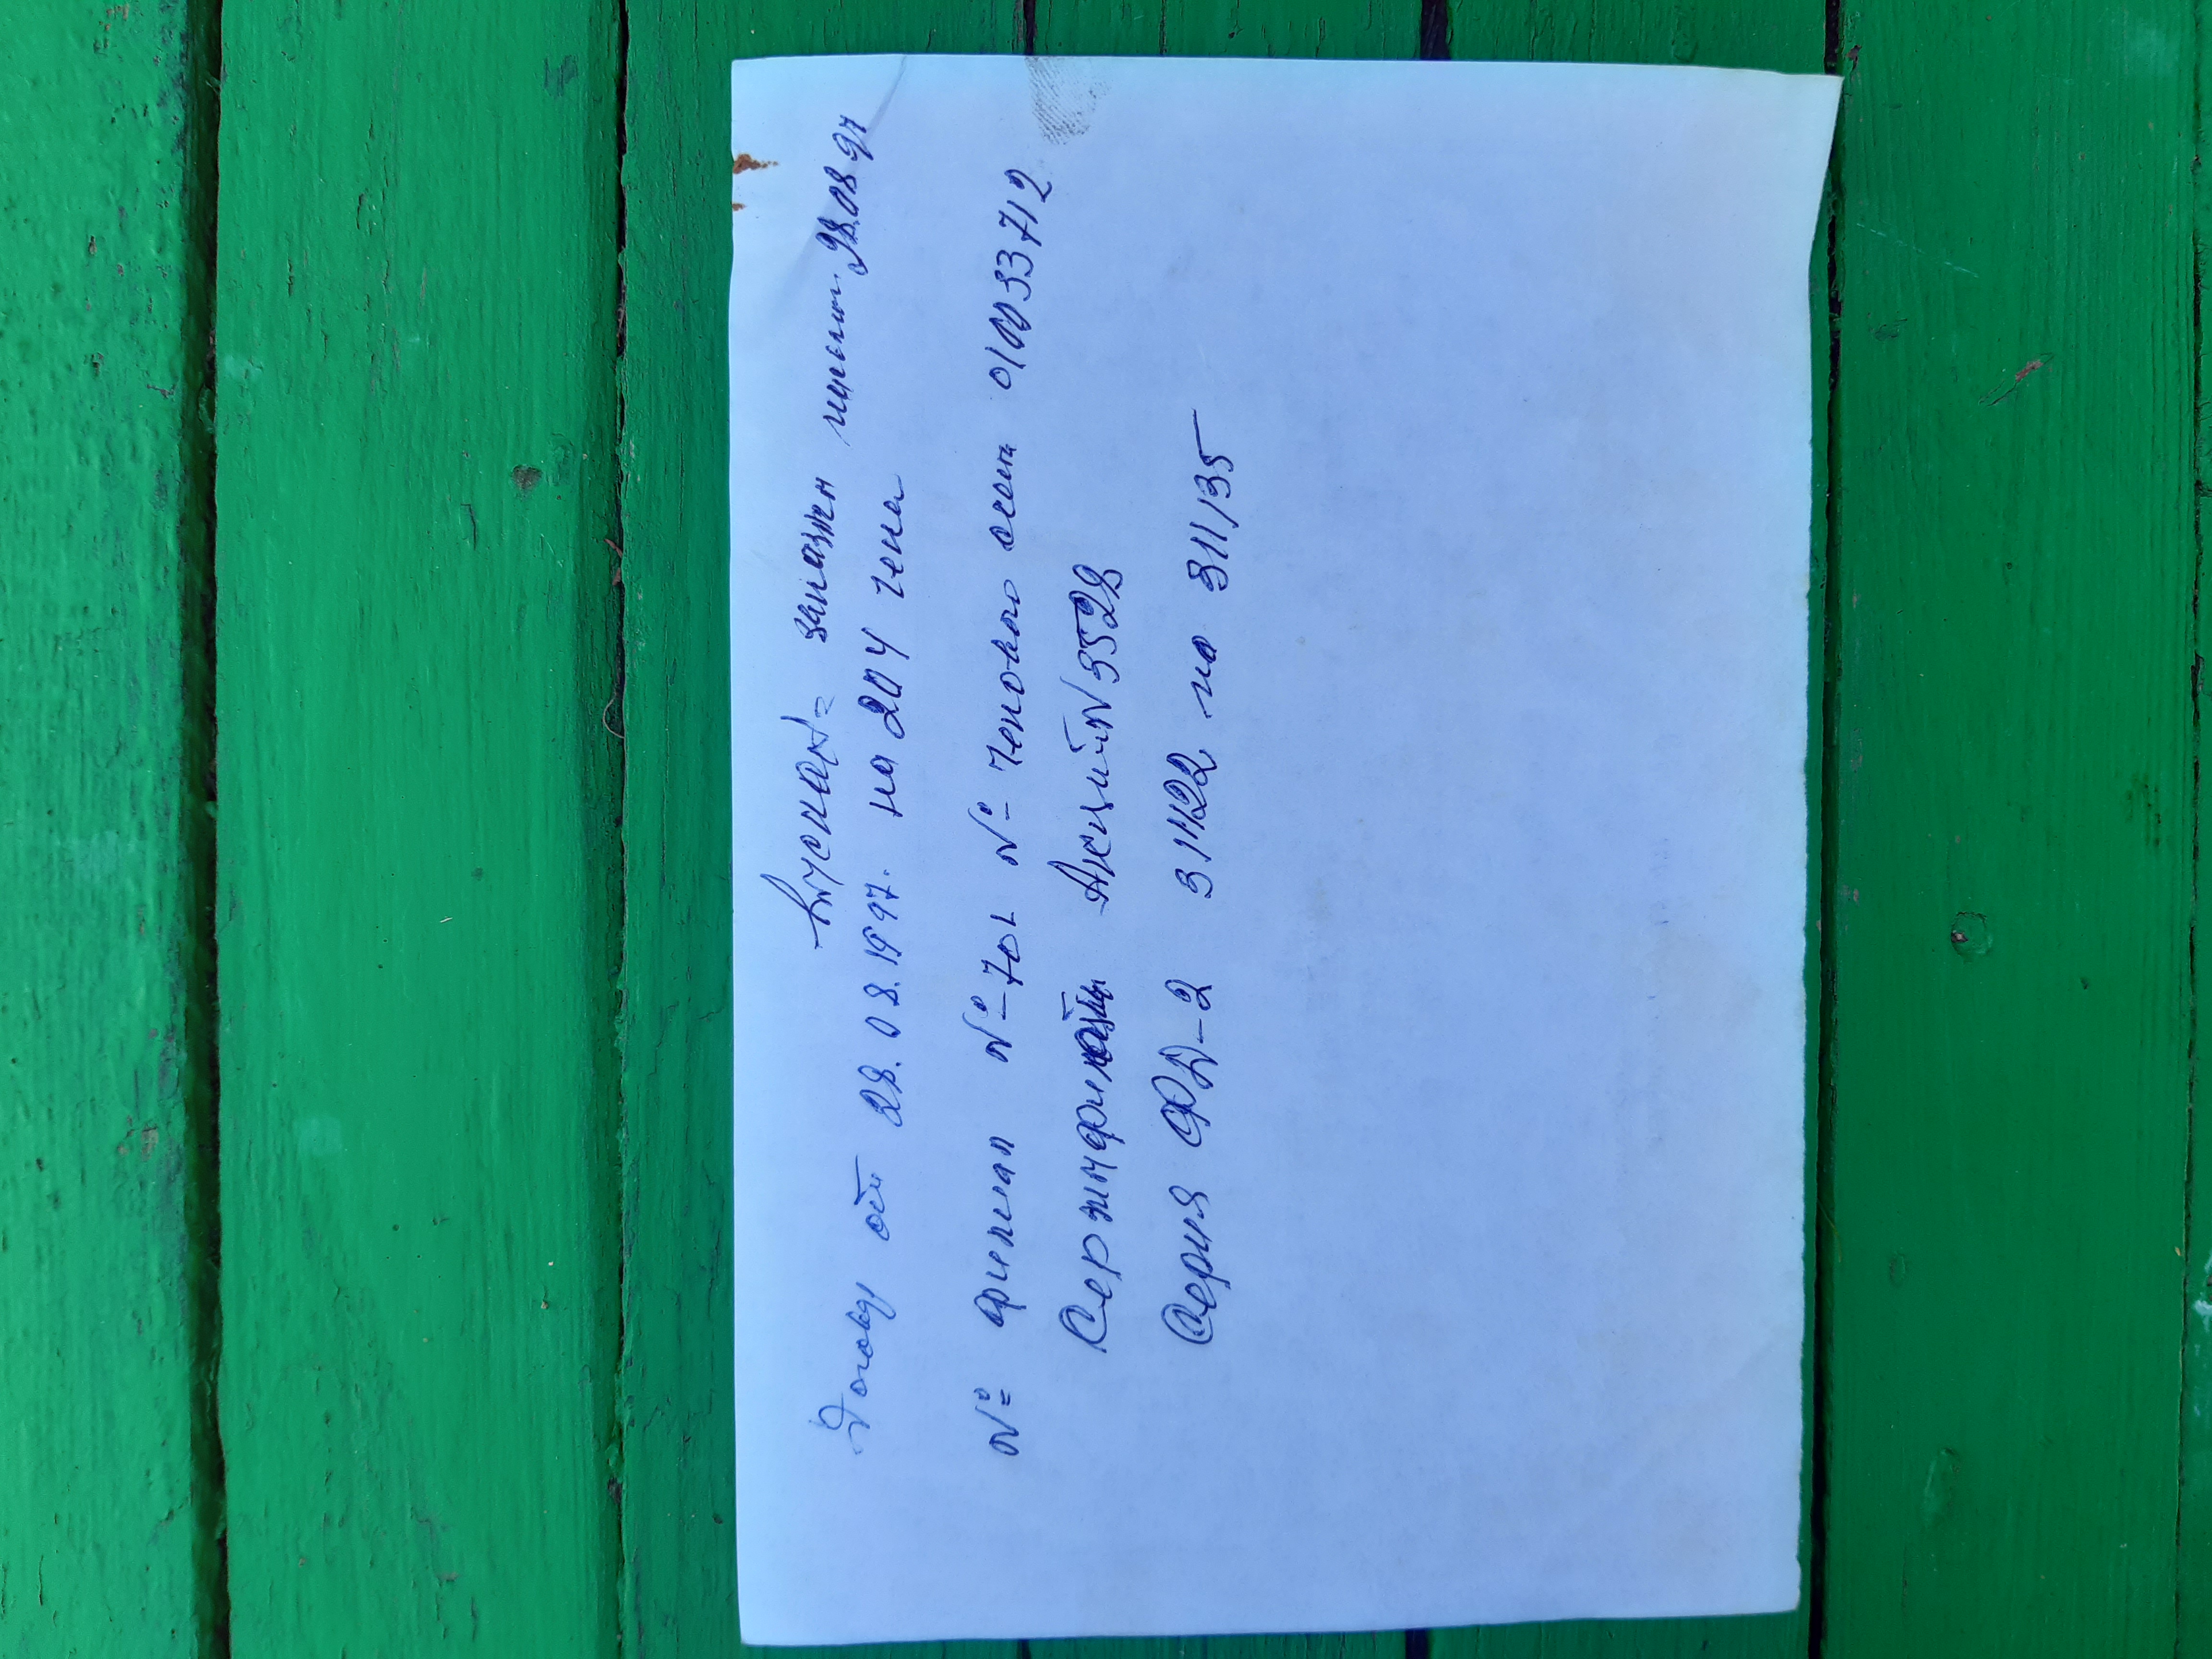 заказном письмом 28.08 97
Договор от 28.08.1997. на 204 чека
№ филиал №-701 № чекового счета 010033712
Сертификаты Акций N 3528
Серия ФД-2 311122 по 311135